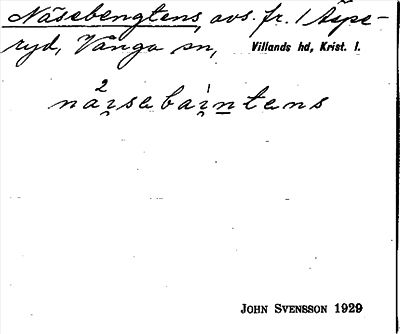 Näsebengtens, avs. fr. 1 Äspe-
ryd, Vånga sn, Villands hd, Krist. l.
JOHN SVENSSON 1929